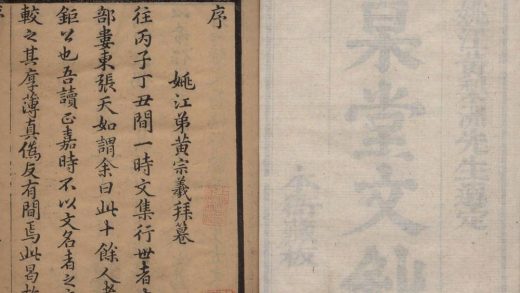 杲堂文
本衙藏板
序
姚江弟黃宗羲拜纂
往丙子丁丑間一時文集行世者
部婁東張天如謂余曰此十餘人
鉅公也吾讀正嘉時不以文名者之
較之其厚薄真偽反有間焉此曷